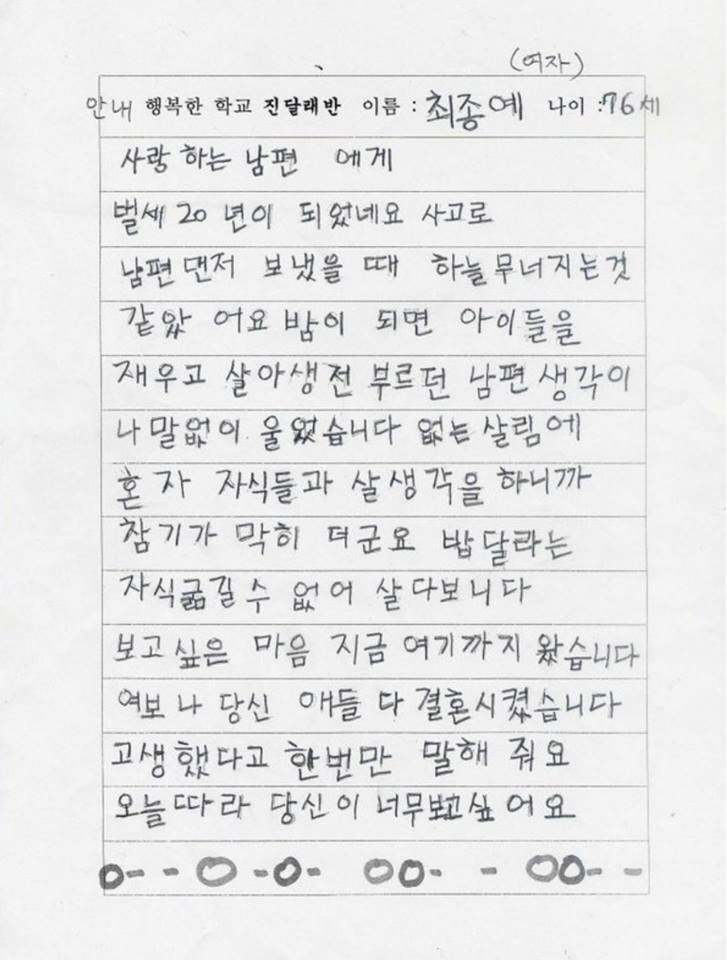 (여자)
안내 행복한 학교 진달래반 이름 : 최종예 나이 : 76세
사랑 하는 남편 에게
벌세 20 년이 되었네요 사고로
남편 먼저 보냈을 때 하늘무너지는것
같았 어요 밤이 되면 아이들을
재우고 살아생전 부르던 남편 생각이
나 말없이 울었습니다 없는 살림에
혼자 자식들과 살생각을 하니까
참기가 막히 더군요 밥달라는
자식굶길수 없어 살다보니다
보고싶은 마음 지금 여기까지 왔습니다
여보 나 당신 애들 다 결혼시켰습니다
고생했다고 한번만 말해 줘요
오늘따라 당신이 너무보고싶어요